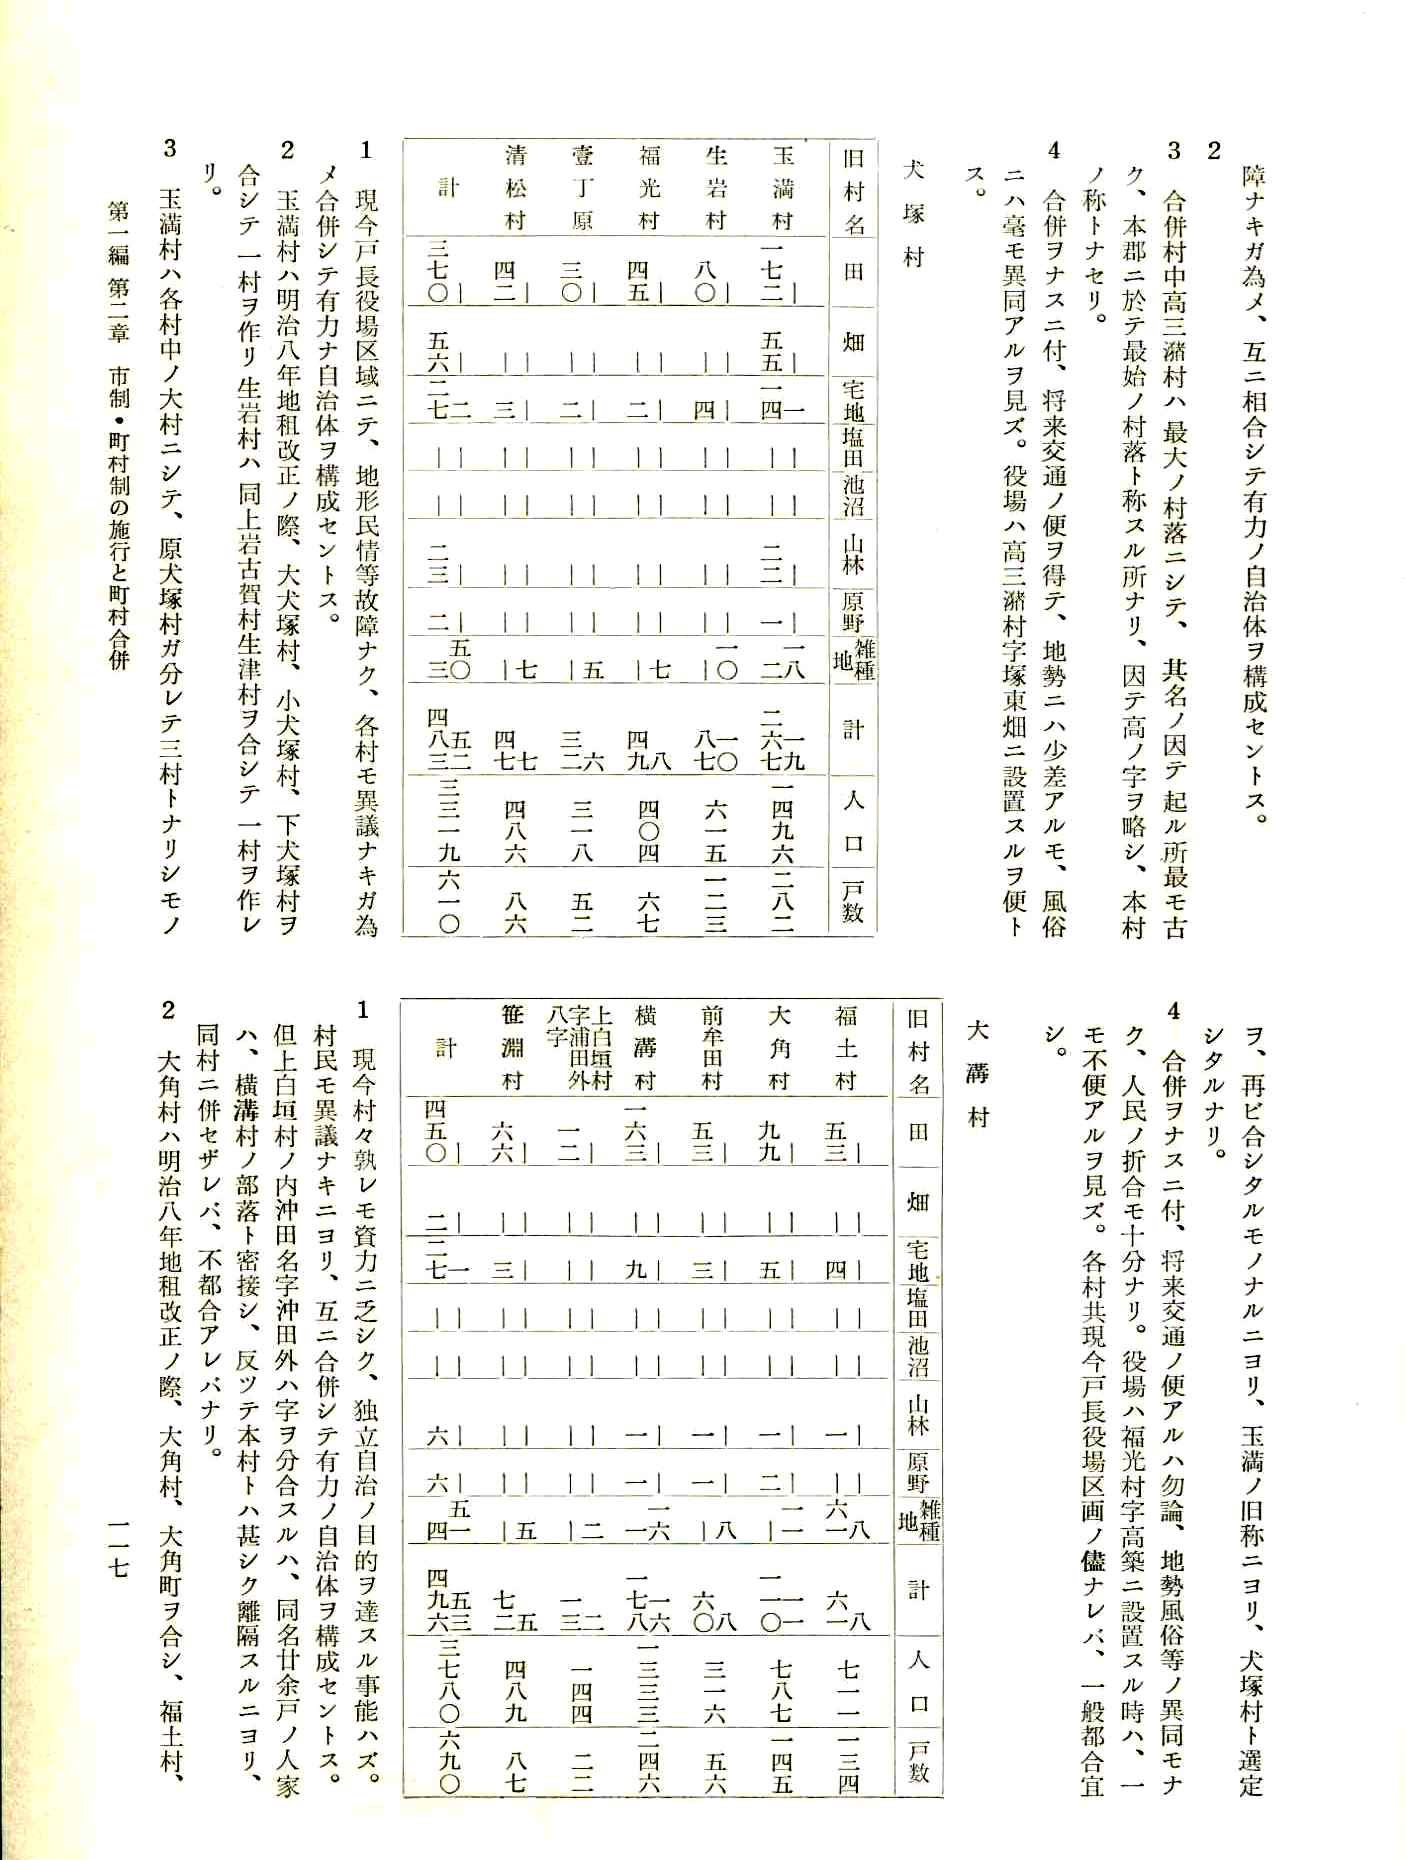 障ナキガ為メ、互ニ相合シテ有力ノ自治体ヲ構成セントス。
2
3 合併村中高三潴村ハ最大ノ村落ニシテ、其名ノ因テ起ル所最モ古
ク、本郡ニ於テ最始ノ村落ト称スル所ナリ、因テ高ノ字ヲ略シ、本村
ノ称トナセリ。
4 合併ヲナスニ付、将来交通ノ便ヲ得テ、地勢ニハ少差アルモ、風俗
ニハ毫モ異同アルヲ見ズ。役場ハ高三潴村字塚東畑ニ設置スルヲ便ト
ス。
犬塚村
旧村名 田 畑 宅地 塩田 池沼 山林 原野 雑種地 計 人口 戸数
玉満村 一七二 | 五五 | 一四 一 | | | | 二二 | 一 | 二 一八 二六七 一九 一四九六 二八二
生岩村 八〇 | | | 四 | | | | | | | | | | 一〇 八七 一〇 六一五 一二三
福光村 四五 | | | 二 | | | | | | | | | | 七 四九 八 四〇四 六七
壹丁原 三〇 | | | 二 | | | | | | | | | | 五 三二 六 三一八 五二
清松村 四二 | | | 三 | | | | | | | | | | 七 四七 七 四八六 八六
計 三七〇 | 五六 | 二七 二 | | | | 二三 | 二 | 三 五〇 四八三 五二 三三一九 六一〇
1 現今戸長役場区域ニテ、地形民情等故障ナク、各村モ異議ナキガ為
メ合併シテ有力ナ自治体ヲ構成セントス。
2 玉満村ハ明治八年地租改正ノ際、大犬塚村、小犬塚村、下犬塚村ヲ
合シテ一村ヲ作リ生岩村ハ同上岩古賀村生津村ヲ合シテ一村ヲ作レ
リ。
3 玉満村ハ各村中ノ大村ニシテ、原犬塚村ガ分レテ三村トナリシモノ
ヲ、再ビ合シタルモノナルニヨリ、玉満ノ旧称ニヨリ、犬塚村ト選定
シタルナリ。
4 合併ヲナスニ付、将来交通ノ便アルハ勿論、地勢風俗等ノ異同モナ
ク、人民ノ折合モ十分ナリ。役場ハ福光村字高築ニ設置スル時ハ、一
モ不便アルヲ見ズ。各村共現今戸長役場区画ノ儘ナレバ、一般都合宜
シ。
大溝村
旧村名 田 畑 宅地 塩田 池沼 山林 原野 雑種地 計 人口 戸数
福土村 五三 | | | 四 | | | | | 一 | | | 六一 八 六一 八 七一一 一三四
大角村 九九 | | | 五 | | | | | 一 | 二 | | 一一 一一〇 一一 七八七 一四五
前牟田村 五三 | | | 三 | | | | | 一 | 一 | | 八 六〇 八 三一六 五六
横溝村 一六三 | | | 九 | | | | | 一 | 一 | 一 一六 一七八 一六 一三三三 二四六
上白垣村字浦田外八字 一二 | | | | | | | | | | | | | | 二 一三 二 一四四 二二
笹淵村 六六 | | | 三 | | | | | | | | | | 五 七二 五 四八九 八七
計 四五〇 | 二 | 二七 一 | | | | 六 | 六 | 四 五一 四九六 五三 三七八〇 六九〇
1 現今村々孰レモ資力ニ乏シク、独立自治ノ目的ヲ達スル事能ハズ。
村民モ異議ナキニヨリ、互ニ合併シテ有力ノ自治体ヲ構成セントス。
但上白垣村ノ内沖田名字沖田外八字ヲ分合スルハ、同名廿余戸ノ人家
ハ、横溝村ノ部落ト密接シ、反ツテ本村トハ甚シク離隔スルニヨリ、
同村ニ併セザレバ、不都合アレバナリ。
2 大角村ハ明治八年地租改正ノ際、大角村、大角町ヲ合シ、福土村、
第一編 第二章 市制・町村制の施行と町村合併
一一七